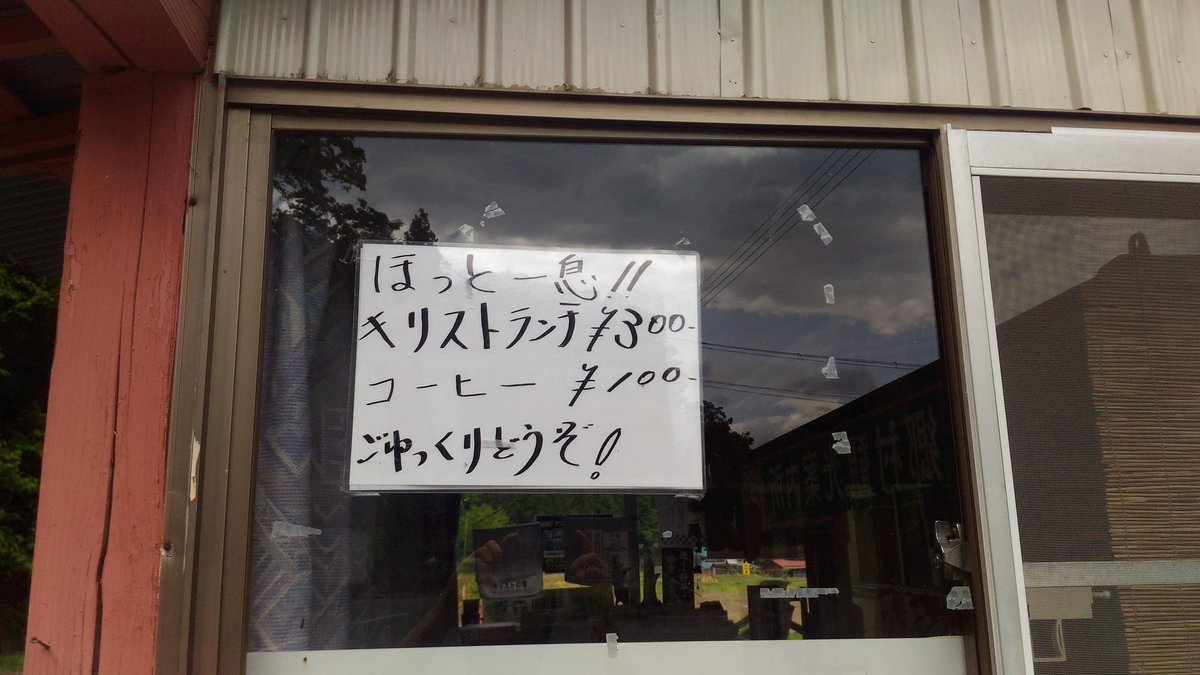 ほっと一息!!
キリストランチ ¥300-
コーヒー ¥100-
ごゆっくりどうぞ!
郷村観光案内所